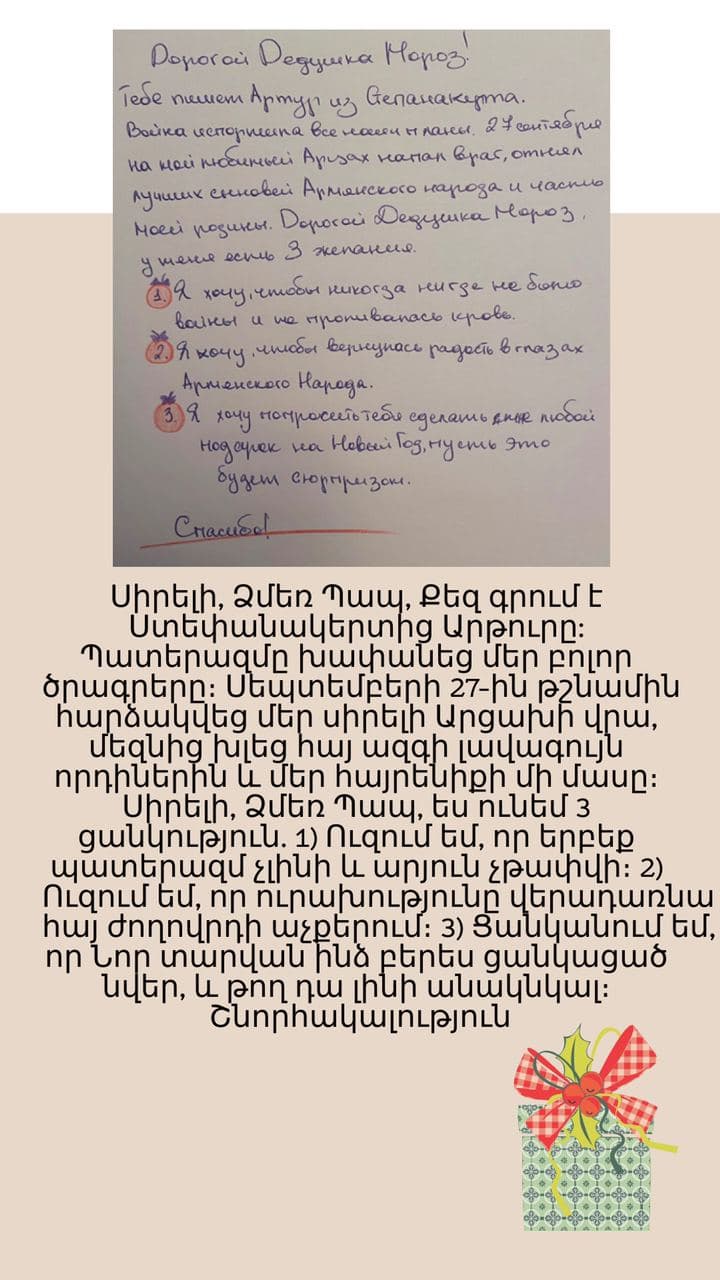 Дорогой Дедушка Мороз!
Тебе пишет Артур из Степанакерта.
Война испортила все наши планы. 27 сентября
на мой любимый Арцах напал враг, отнял
лучших сыновей Армянского народа и частью
моей родины. Дорогой Дедушка Мороз,
у меня есть 3 желания.
1. Я хочу, чтобы никогда нигде не было
войны и не проливалась кровь.
2. Я хочу, чтобы вернулась радость в глазах
Армянского Народа.
3. Я хочу попросить тебя сделать мне любой
подарок на Новый Год, пусть это
будет сюрпризом.
Спасибо!
Սիրելի, Ձմեռ Պապ, Քեզ գրում է
Ստեփանակերտից Արթուրը:
Պատերազմը խափանեց մեր բոլոր
ծրագրերը: Սեպտեմբերի 27-ին թշնամին
հարձակվեց մեր սիրելի Արցախի վրա,
մեզնից խլեց հայ ազգի լավագույն
որդիներին և մեր հայրենիքի մի մասը:
Սիրելի, Ձմեռ Պապ, ես ունեմ 3
ցանկություն. 1) Ուզում եմ, որ երբեք
պատերազմ չլինի և արյուն չթափվի: 2)
Ուզում եմ, որ ուրախությունը վերադառնա
հայ ժողովրդի աչքերում: 3) Ցանկանում եմ,
որ Նոր տարվան ինձ բերես ցանկացած
նվեր, և թող դա լինի անակնկալ:
Շնորհակալություն